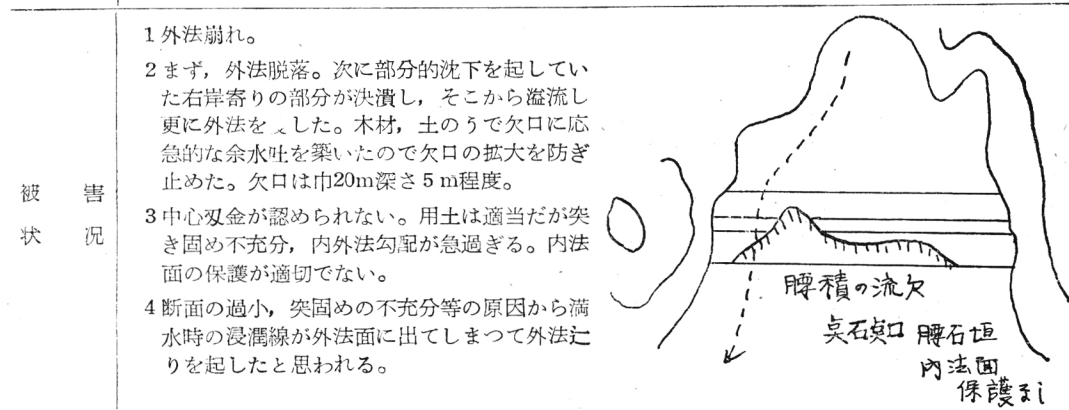 被害
状況
1 外法崩れ。
2 まず，外法脱落。次に部分的沈下を起してい
た右岸寄りの部分が決潰し，そこから溢流し
更に外法を した。木材，土のうで欠口に応
急的な余水吐を築いたので欠口の拡大を防ぎ
止めた。欠口は巾20m深さ5m程度。
3 中心刄金が認められない。用土は適当だが突
き固め不充分，内外法勾配が急過ぎる。内法
面の保護が適切でない。
4 断面の過小，突固めの不充分等の原因から満
水時の浸潤線が外法面に出てしまつて外法辷
りを起したと思われる。
腰積の流欠
腰石垣
内法面
保護なし